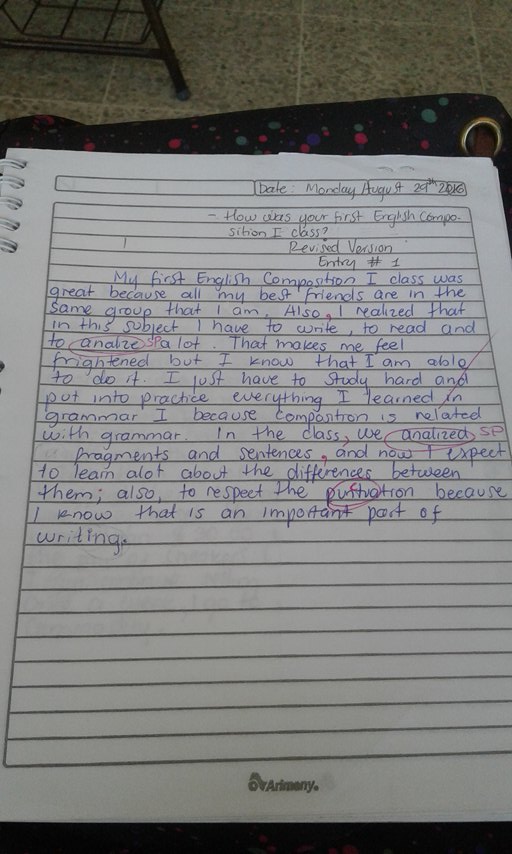 Date: Monday August 29th 2016
- How was your first English Compo-
sition I class?
Revised Version
Entry # 1
My first English Composition I class was
great because all my best friends are in the
same group that I am. Also, I realized that
in this subject I have to write, to read and
to analize SP alot. That makes me feel
frightened but I know that I am able
to do it. I just have to study hard and
put into practice everything I learned in
grammar I because composition is related
with grammar. In the class, we analized SP
fragments and sentences, and now I expect
to learn alot about the differences between
them; also, to respect the
because
I know that is an important part of
writing.
Arimany.